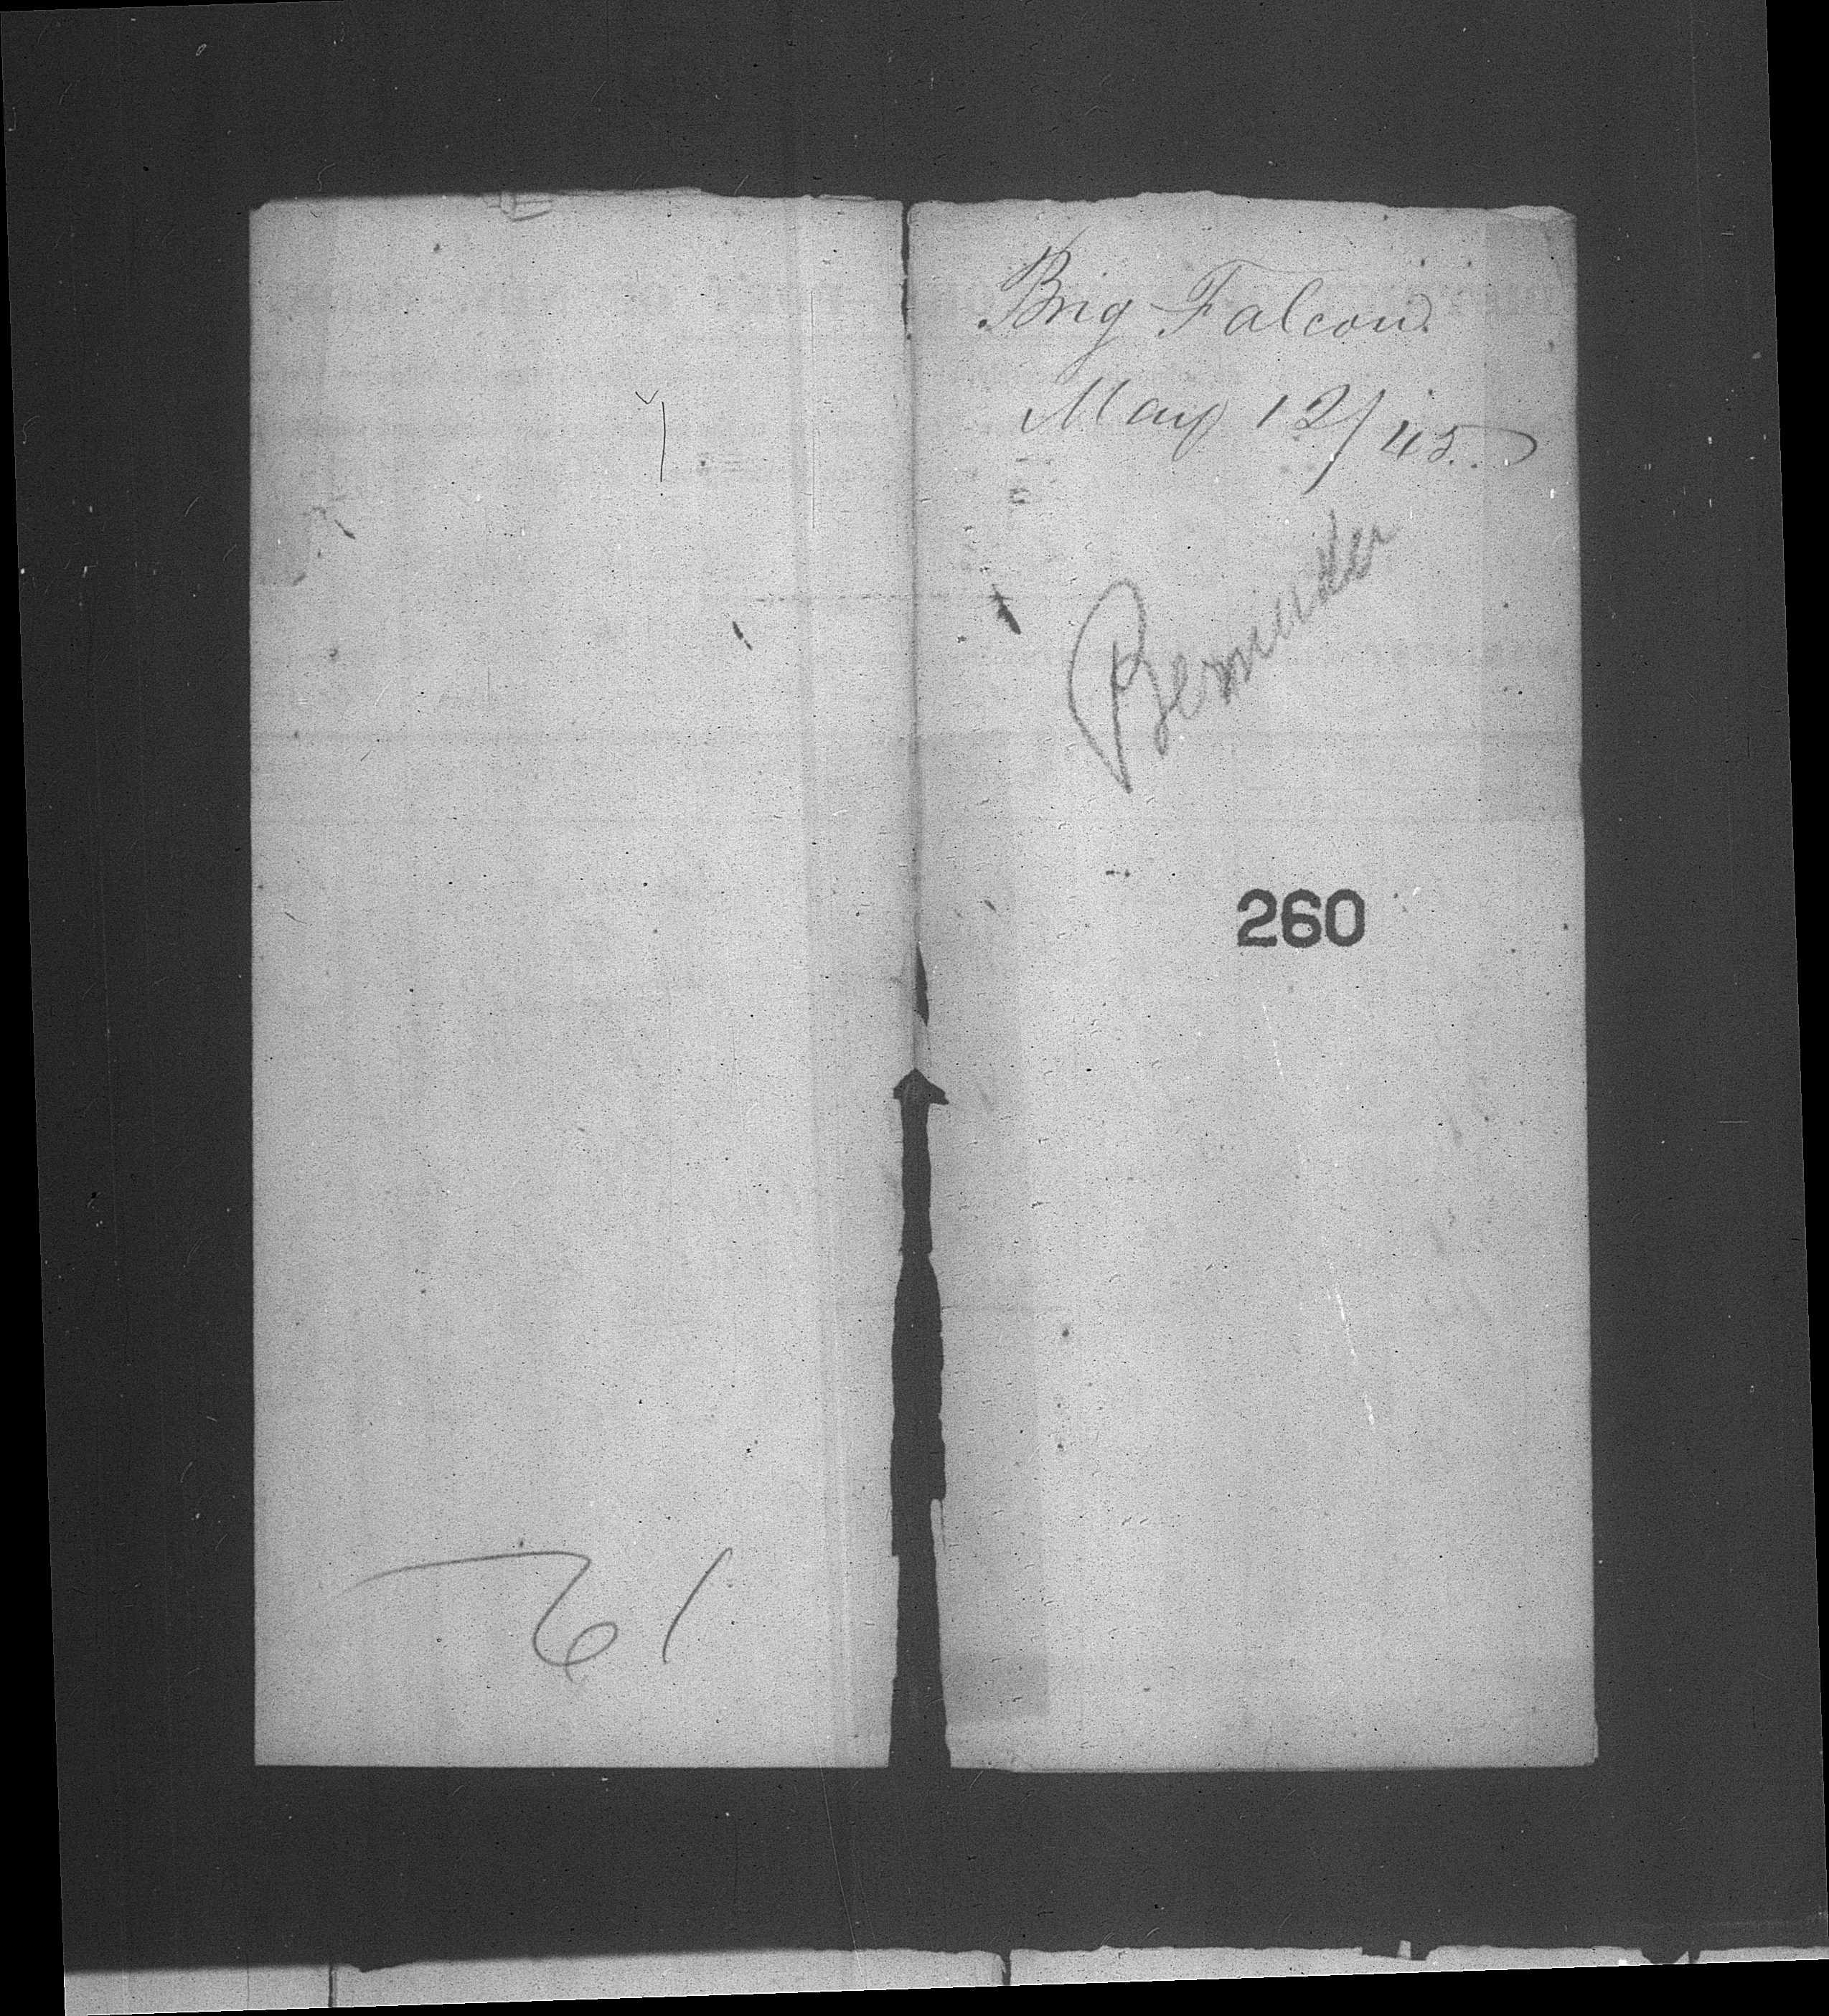 Brig Falcon.
May 12/45.
Bermuda
260
61